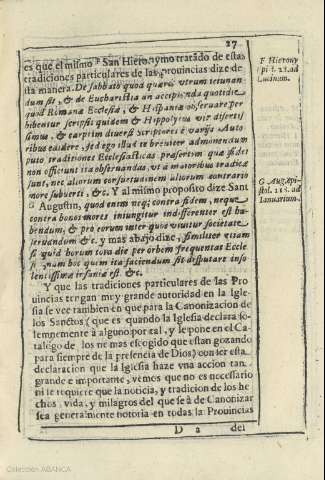 27
es que el mismo F San Hieronymo tratãdo de estas
tradiciones particulares de las prouincias dize de
sta manera. De sabbato quod quæris vtrum ieiunan
dum sit, & de Eucharistia an accipienda quotidie
quod Romanæ Ecclesiæ, & Hispaniæ obseruare per
hibentur scripsit quidem & Hippolytus vir disertis
simus, & carptim diuersi scriptores è varijs Auto
ribus edidere, sed ego illud te breuiter admonendum
puto traditiones Ecclesiasticas præsertim quæ fidei
non officiunt ita obseruandas, vt à maioribus traditæ
sunt, nec aliorum consuetudinem aliorum contrario
more subuerti, &c. Y al mismo proposito dize Sant
G Augustin, quod enim neq; contra fidem, neque
contra bonos mores iniungitur indifferenter est ha
bendum, & pro eorum inter quos viuitur societate
seruandum & c. y mas abajo dize, similiter etiam
si quid horum tota die per orbem frequentat Eccle
sia, nam hoc quin ita faciendum sit disputare inso
lentissimæ insaniæ est. &c.
Y que las tradiciones particulares de las Pro
uincias tengan muy grande autoridad en la Igle-
sia se vee tambien en que para la Canonizacion de
los Sanctos (que es quando la Iglesia declara so-
lemnemente à alguno por tal, y le pone en el Ca-
talogo de los ne mas escogido que estan gozando
para siempre de la presencia de Dios) con ser esta
declaracion que la Iglesia haze vna accion tan
grande e importante, vemos que no es necessario
ni se requiere que la noticia, y tradicion de los he
chos, vida, y milagros del que se à de Canonizar
sea generalmente notoria en todas la Prouincias
D a del
F Hierony
epi-t. 28. ad
Lucinum.
G Aug. Epi-
stol. 118. ad
Ianuarium.
Colección ABANCA